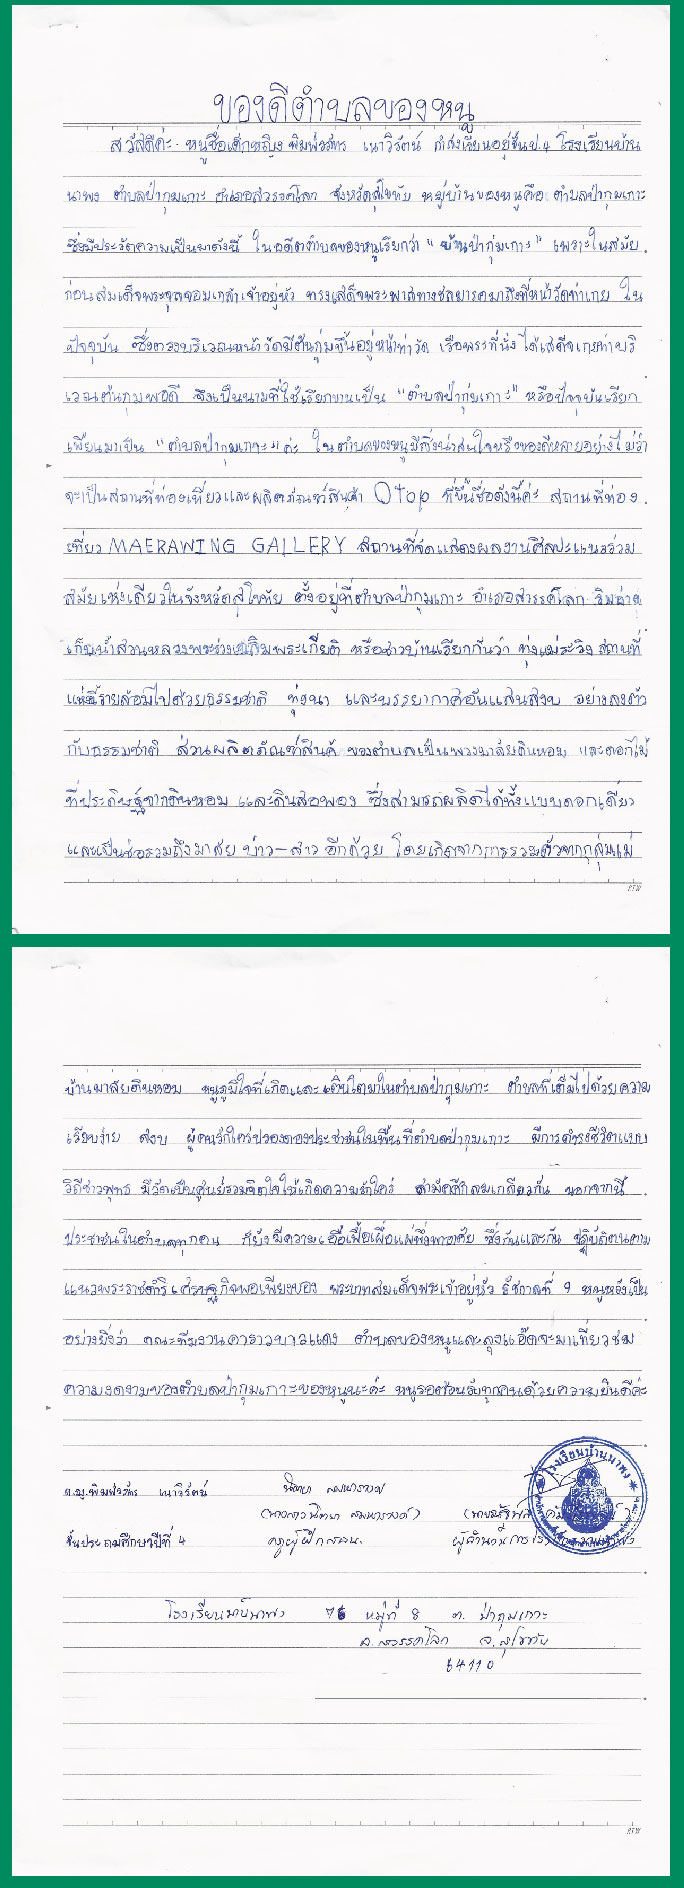 ของดีตำบลของหนู
สวัสดีค่ะ หนูชื่อเด็กหญิง พิมพ์วรัทร เนาวิรัตน์ กำลังเรียนอยู่ชั้นป.4 โรงเรียนบ้าน
นาพง ตำบลป่ากุมเกาะ อำเภอสวรรคโลก จังหวัดสุโขทัย หมู่บ้านของหนูคือ ตำบลป่ากุมเกาะ
ซึ่งมีประวัติความเป็นมาดังนี้ ในอดีตตำบลของหนูเรียกว่า "บ้านป่ากุ่มเกาะ" เพราะในสมัย
ก่อนสมเด็จพระจุลจอมเกล้าเจ้าอยู่หัว ทรงเสด็จประพาสทางชลมารคมาถึงที่หน้าวัดท่าเกย ใน
ปัจจุบัน ซึ่งตรงบริเวณหน้าวัดมีต้นกุ่มขึ้นอยู่หน้าท่าวัด เรือพระที่นั่ง ได้เสด็จเกยท่าบริ
เวณต้นกุมพอดี จึงเป็นนามที่ใช้เรียกขานเป็น "ตำบลป่ากุ่มเกาะ" หรือปัจจุบันเรียก
เพี้ยนมาเป็น "ตำบลป่ากุมเกาะ" ค่ะ ในตำบลของหนูมีสิ่งน่าสนใจหรือของดีหลายอย่างไม่ว่า
จะเป็นสถานที่ท่องเที่ยวและผลิตภัณฑ์สินค้า Otop ที่ขึ้นชื่อดังนี้ค่ะ สถานที่ท่อง
เที่ยว MAERAWING GALLERY สถานที่จัดแสดงผลงานศิลปะแนวร่วม
สมัยแห่งเดียวในจังหวัดสุโขทัย ตั้งอยู่ที่ตำบลป่ากุมเกาะ อำเภอสวรรคโลก ริมอ่าง
เก็บน้ำสวนหลวงพระร่วงเฉลิมพระเกียติ หรือชาวบ้านเรียกกันว่า ทุ่งแม่ระวิง สถานที่
แห่งนี้รายล้อมไปด้วยธรรมชาติ ทุ่งนา และบรรยากาศอันแสนสงบ อย่างลงตัว
กับธรรมชาติ ส่วนผลิตภัณฑ์สินค้า ของตำบลเป็นพวงมาลัยดินหอม และดอกไม้
ที่ประดิษฐ์จากดินหอม และดินสอพอง ซึ่งสามารถผลิตได้ทั้งแบบดอกเดี่ยว
และเป็นช่อรวมถึงมาลัย บ่าว-สาว อีกด้วย โดยเกิดจากการรวมตัวจากกลุ่มแม่
บ้านมาลัยดินหอม หนูภูมิใจที่เกิดและเติบโตมาในตำบลป่ากุมเกาะ ตำบลที่เต็มไปด้วยความ
เรียบง่าย สงบ ผู้คนรักใคร่ปรองดองประชาชนในพื้นที่ตำบลป่ากุมเกาะ มีการดำรงชีวิตแบบ
วิถีชาวพุทธ มีวัดเป็นศูนย์รวมจิตใจให้เกิดความรักใคร่ สามัคคีกลมเกลียวกัน นอกจากนี้
ประชาชนในตำบลทุกคน ก็ยังมีความเอื้อเฟื้อเผื่อแผ่พึ่งพาอาศัย ซึ่งกันและกัน ปฏิบัติตนตาม
แนวพระราชดำริเศรษฐกิจพอเพียงของ พระบาทสมเด็จพระเจ้าอยู่หัว รัชกาลที่ 9 หนูหวังเป็น
อย่างยิ่งว่า คณะทีมงานคาราวบาวแดง ตำบลของหนูและลุงแอ๊ดจะมาเที่ยวชม
ความงดงามของตำบลป่ากุมเกาะของหนูนะค่ะ หนูรอต้อนรับทุกคนด้วยความยินดีค่ะ
โรงเรียนบ้านนาพง
ด.ญ.พิมพ์วรัทร เนาวิรัตน์
ชั้นประถมศึกษาปีที่ 4 ครูผู้ฝึกสอน ผู้อำนวยการ
โรงเรียนบ้านนาพง 76 หมู่ที่ 8 ต. ป่ากุมเกาะ
อ.สวรรคโลก จ.สุโขทัย
64110